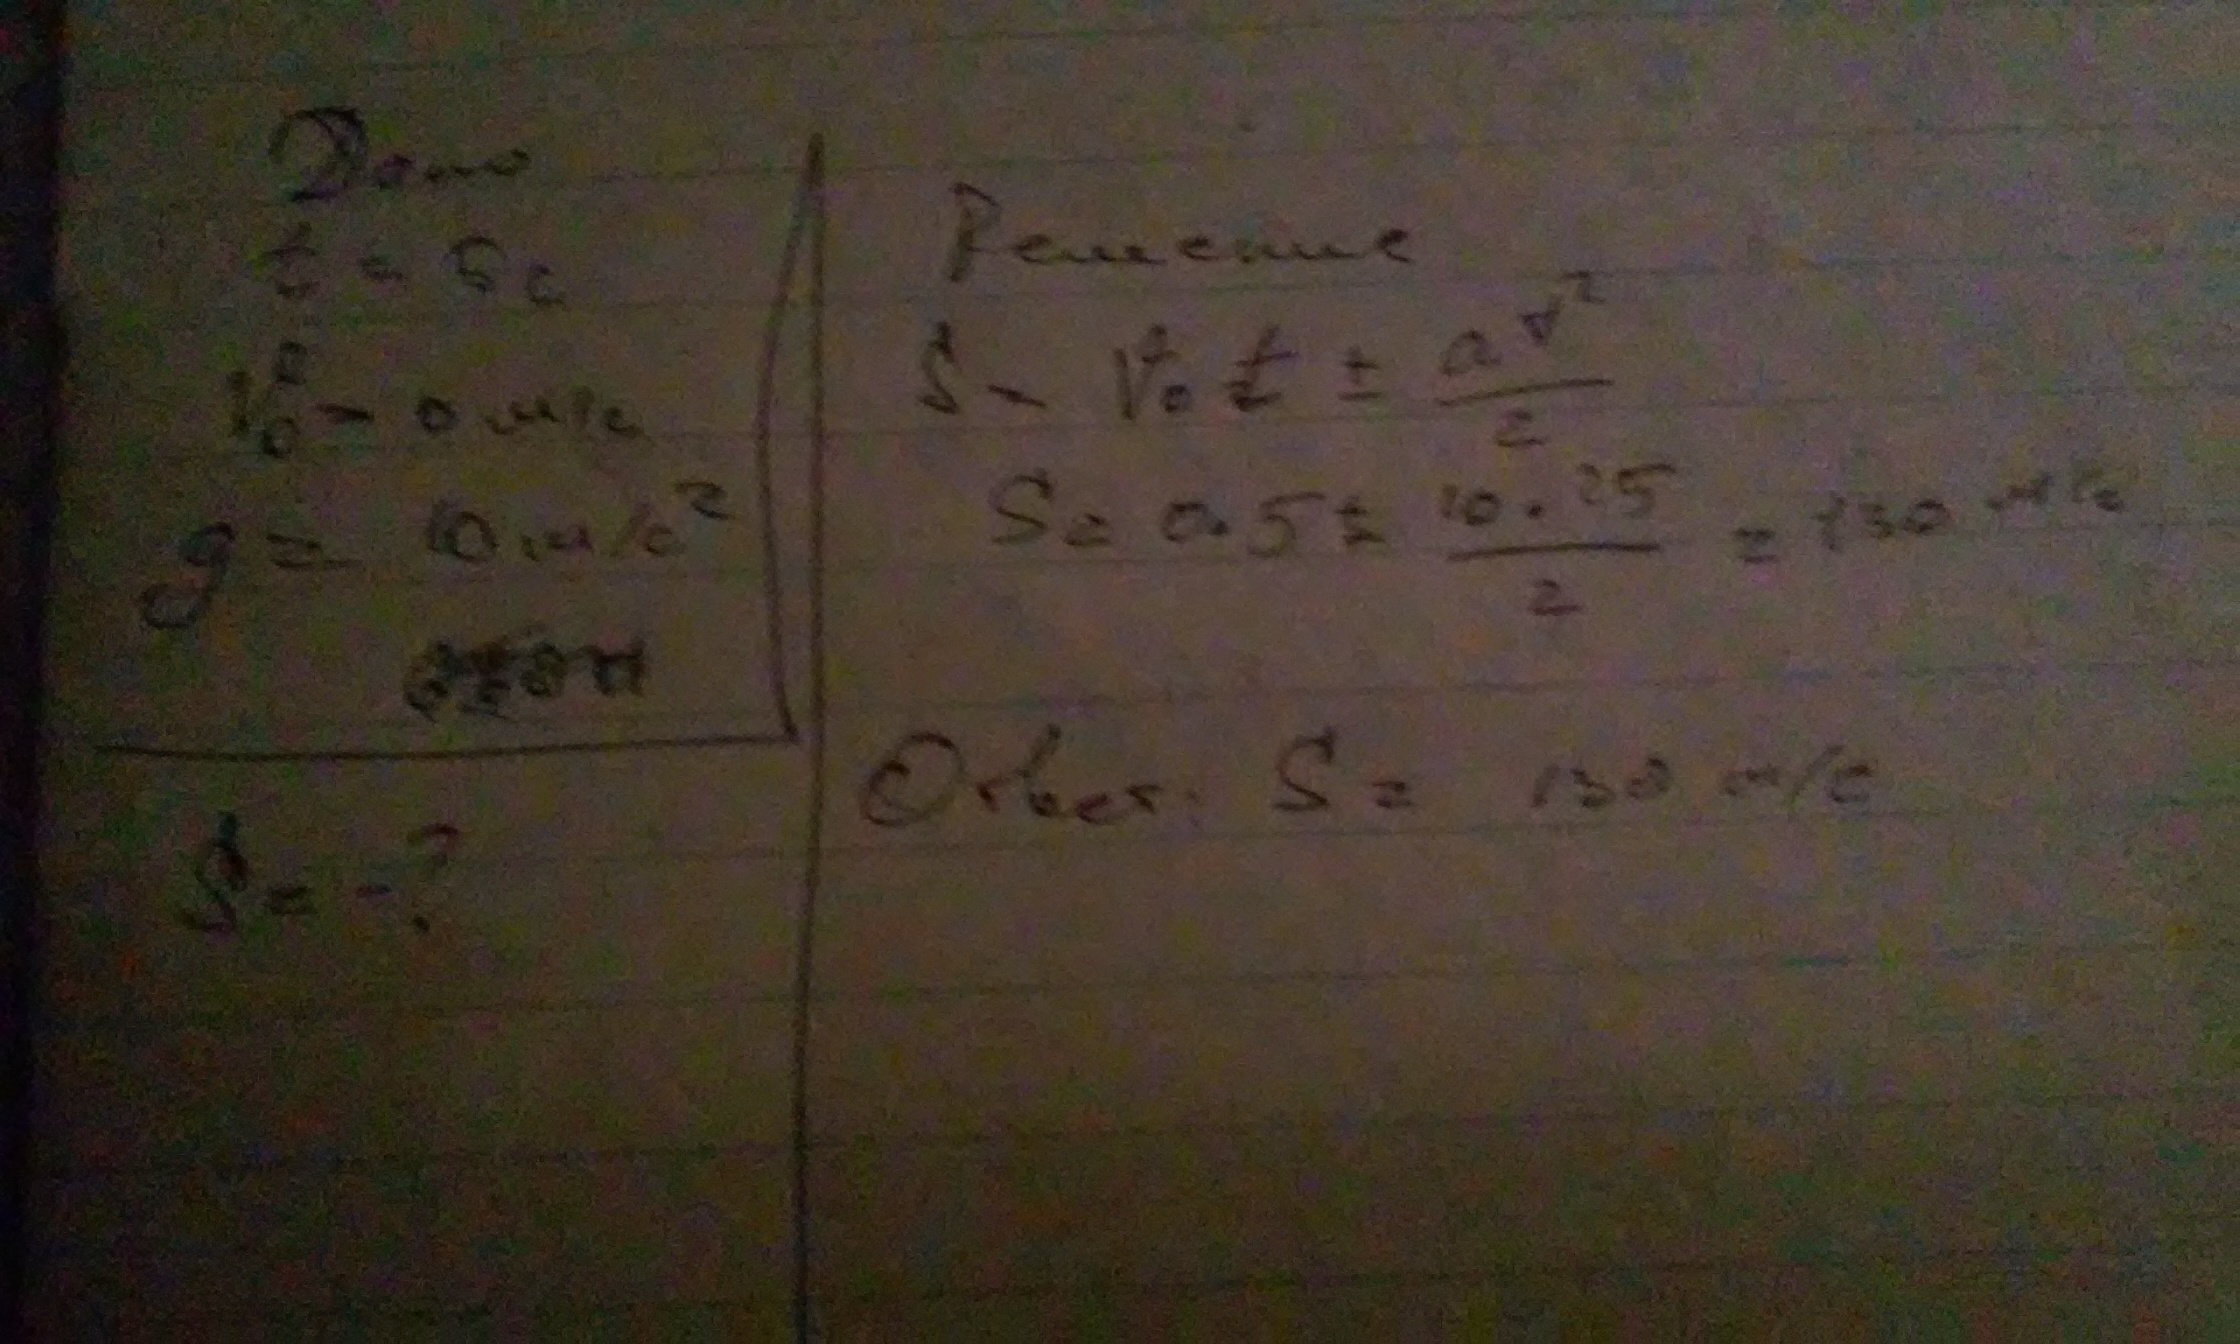 Дано
t = 5 c
V₀ = 0 м/с
g = 10 м/с²
S = - ?
Решение
S = V₀t ± at²/2
S = 0·5 ± 10·25/2 = 130 м/с
Ответ: S = 130 м/с